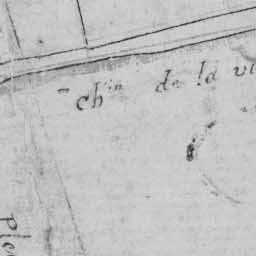 ch.in de la
Ple